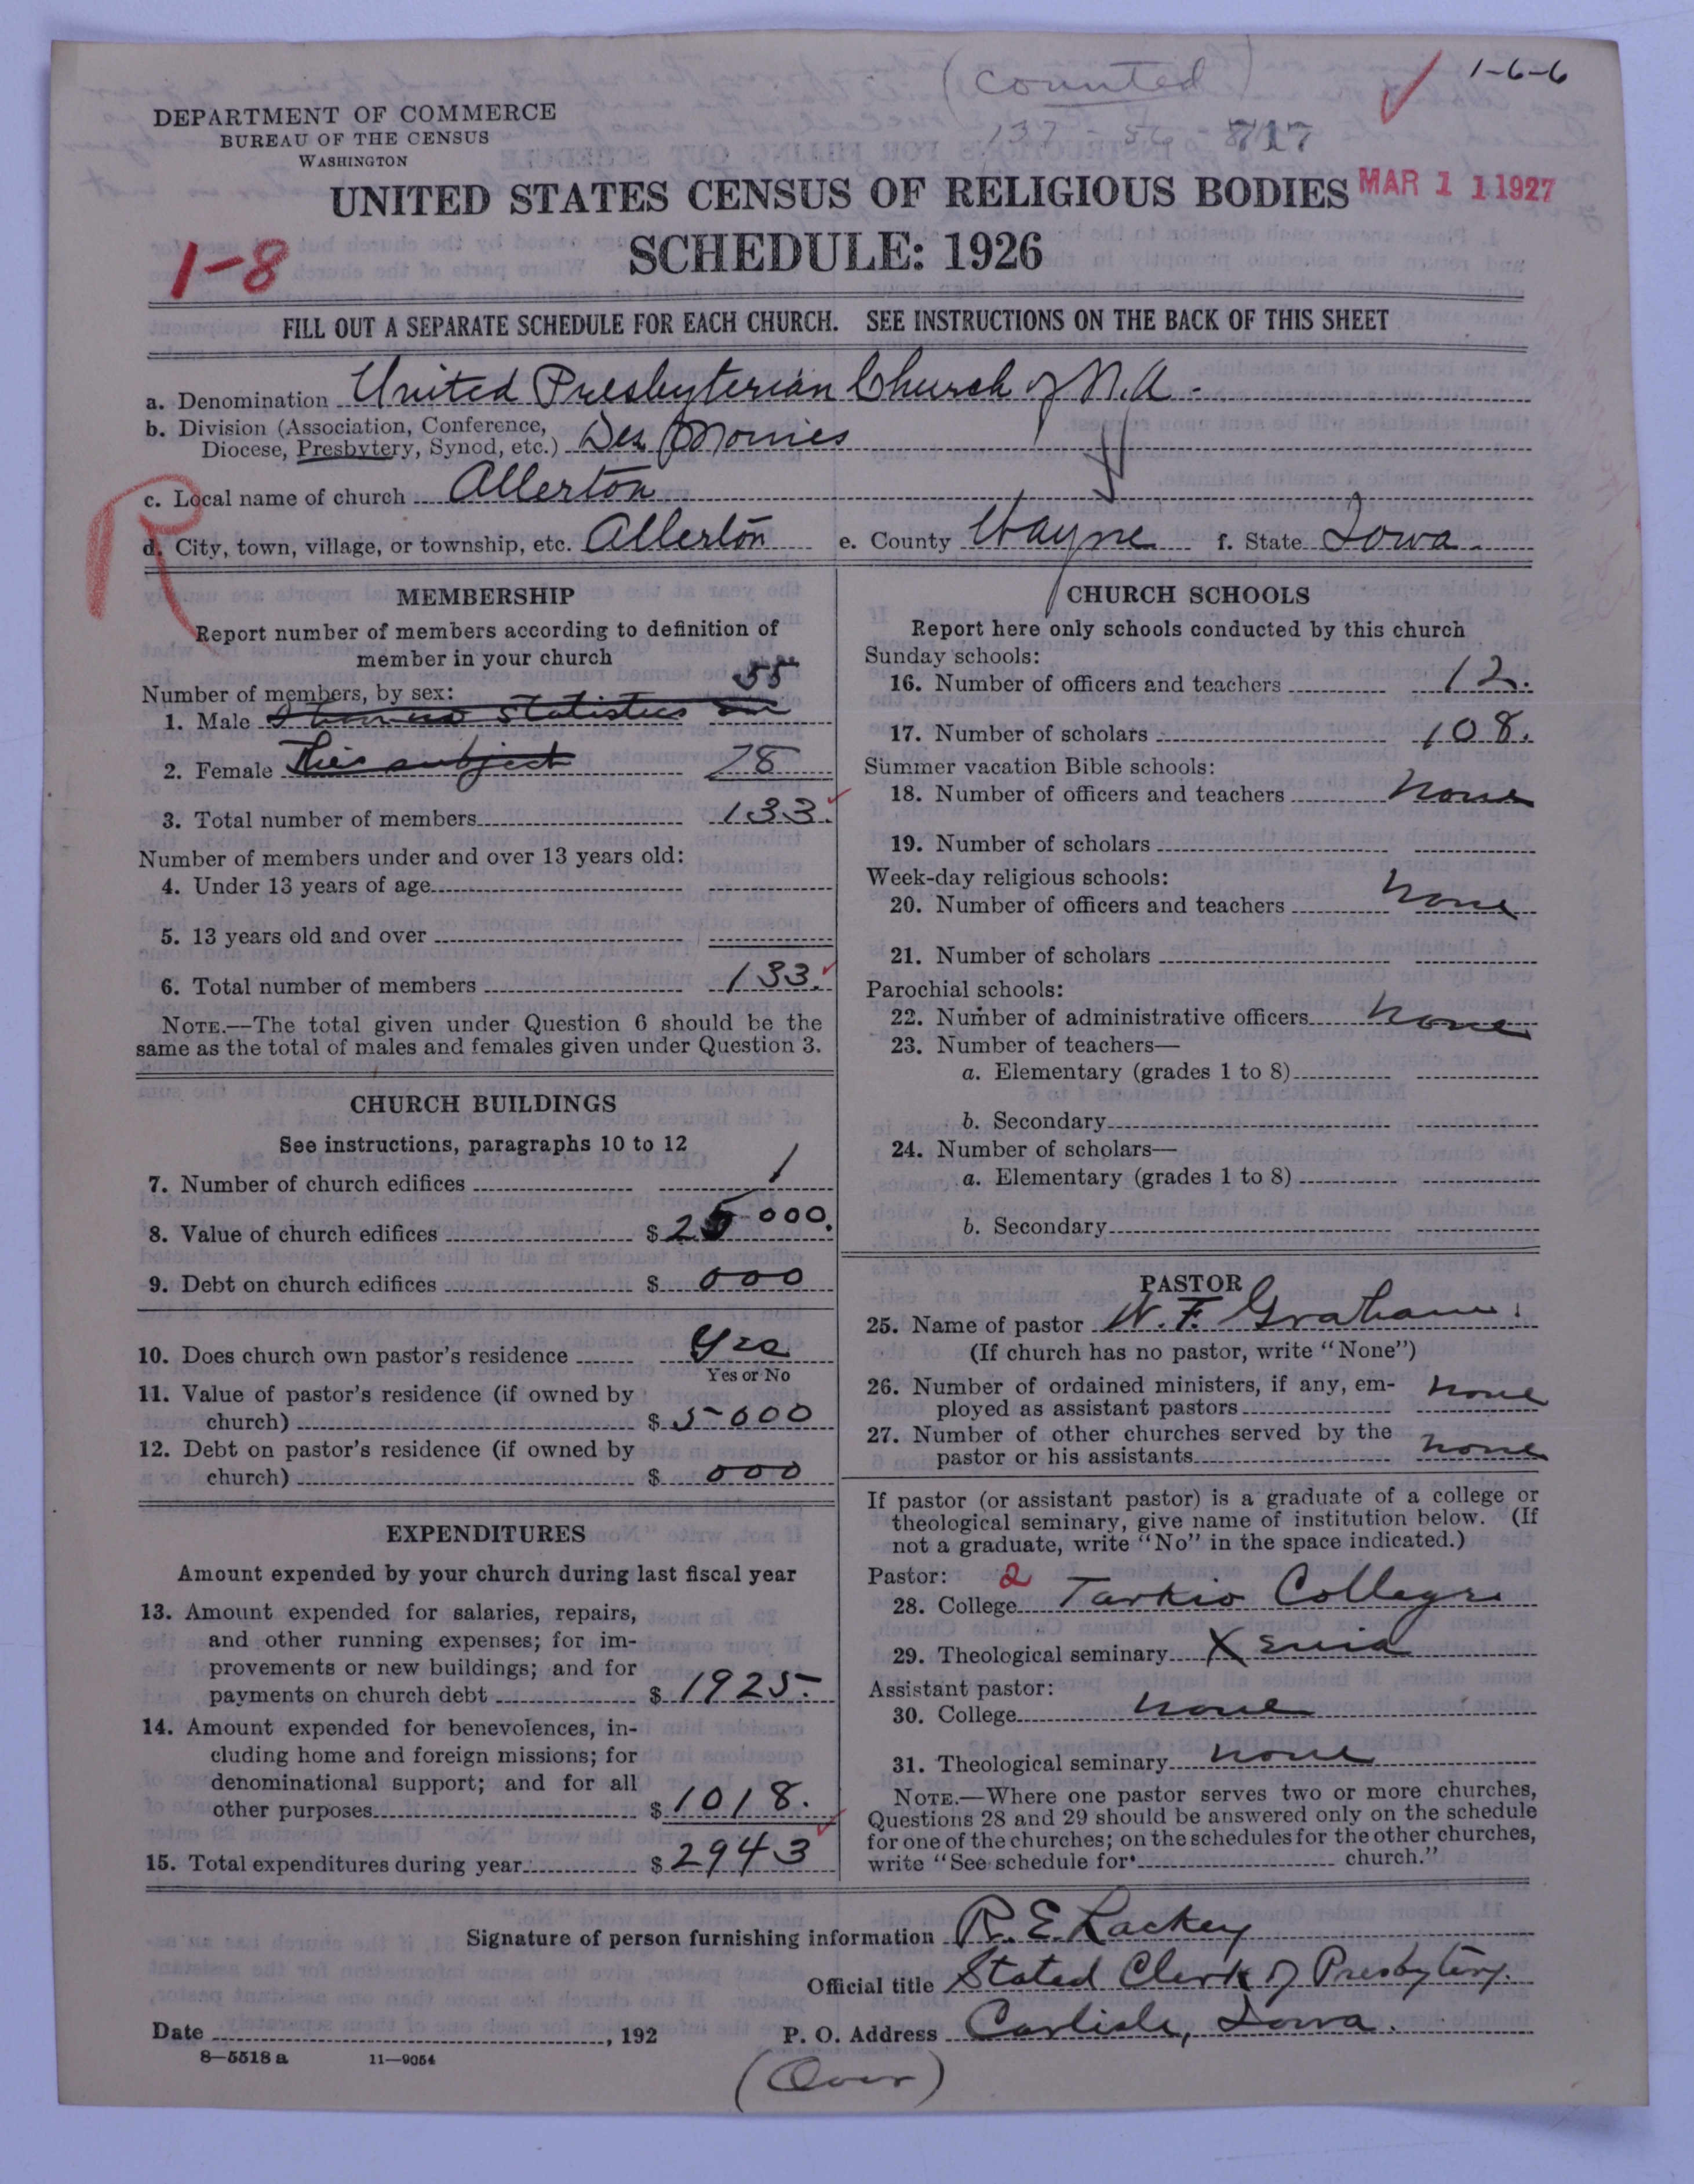 (Counted)
1-6-6
137-56-717
DEPARTMENT OF COMMERCE
BUREAU OF THE CENSUS
WASHINGTON
UNITED STATES CENSUS OF RELIGIOUS BODIES
MAR 11 1927
SCHEDULE: 1926
1-8
FILL OUT A SEPARATE SCHEDULE FOR EACH CHURCH. SEE INSTRUCTIONS ON THE BACK OF THIS SHEET
a. Denomination United Presbyterian Church of N.A.
b. Division (Association, Conference,
Diocese, Presbytery, Synod, etc.) Des Moines
c. Local name of church Allerton
R
d. City, town, village, or township, etc. Allerton e. County Wayne f. State Iowa
MEMBERSHIP
Report number of members according to definition of
member in your church
Number of members, by sex:
1. Male I have no statistics on 55
2. Female This subject 78
3. Total number of members 133.
Number of members under and over 13 years old:
4. Under 13 years of age
5. 13 years old and over
6. Total number of members 133.
NOTE.—The total given under Question 6 should be the
same as the total of males and females given under Question 3.
CHURCH BUILDINGS
See instructions, paragraphs 10 to 12
7. Number of church edifices 1
8. Value of church edifices $ 25000.
9. Debt on church edifices $ 000
10. Does church own pastor's residence Yes
Yes or No
11. Value of pastor's residence (if owned by
church) $ 5000
12. Debt on pastor's residence (if owned by
church) $ 000
EXPENDITURES
Amount expended by your church during last fiscal year
13. Amount expended for salaries, repairs,
and other running expenses; for im-
provements or new buildings; and for
payments on church debt $ 1925.
14. Amount expended for benevolences, in-
cluding home and foreign missions; for
denominational support; and for all
other purposes $ 1018.
15. Total expenditures during year $ 2943
CHURCH SCHOOLS
Report here only schools conducted by this church
Sunday schools:
16. Number of officers and teachers 12.
17. Number of scholars 108.
Summer vacation Bible schools:
18. Number of officers and teachers none
19. Number of scholars
Week-day religious schools:
20. Number of officers and teachers none
21. Number of scholars
Parochial schools:
22. Number of administrative officers none
23. Number of teachers—
a. Elementary (grades 1 to 8)
b. Secondary
24. Number of scholars—
a. Elementary (grades 1 to 8)
b. Secondary
PASTOR
25. Name of pastor W. F. Graham
(If church has no pastor, write "None")
26. Number of ordained ministers, if any, em-
ployed as assistant pastors none
27. Number of other churches served by the
pastor or his assistants none
If pastor (or assistant pastor) is a graduate of a college or
theological seminary, give name of institution below. (If
not a graduate, write "No" in the space indicated.)
Pastor: 2
28. College Tarkio College
29. Theological seminary Xenia
Assistant pastor:
30. College none
31. Theological seminary none
NOTE.—Where one pastor serves two or more churches,
Questions 28 and 29 should be answered only on the schedule
for one of the churches; on the schedules for the other churches,
write "See schedule for church."
Signature of person furnishing information R. E. Lackey
Official title Stated Clerk of Presbytery.
Date , 192 P. O. Address Carlisle, Iowa.
8—5518 a 11—9054
(Over)